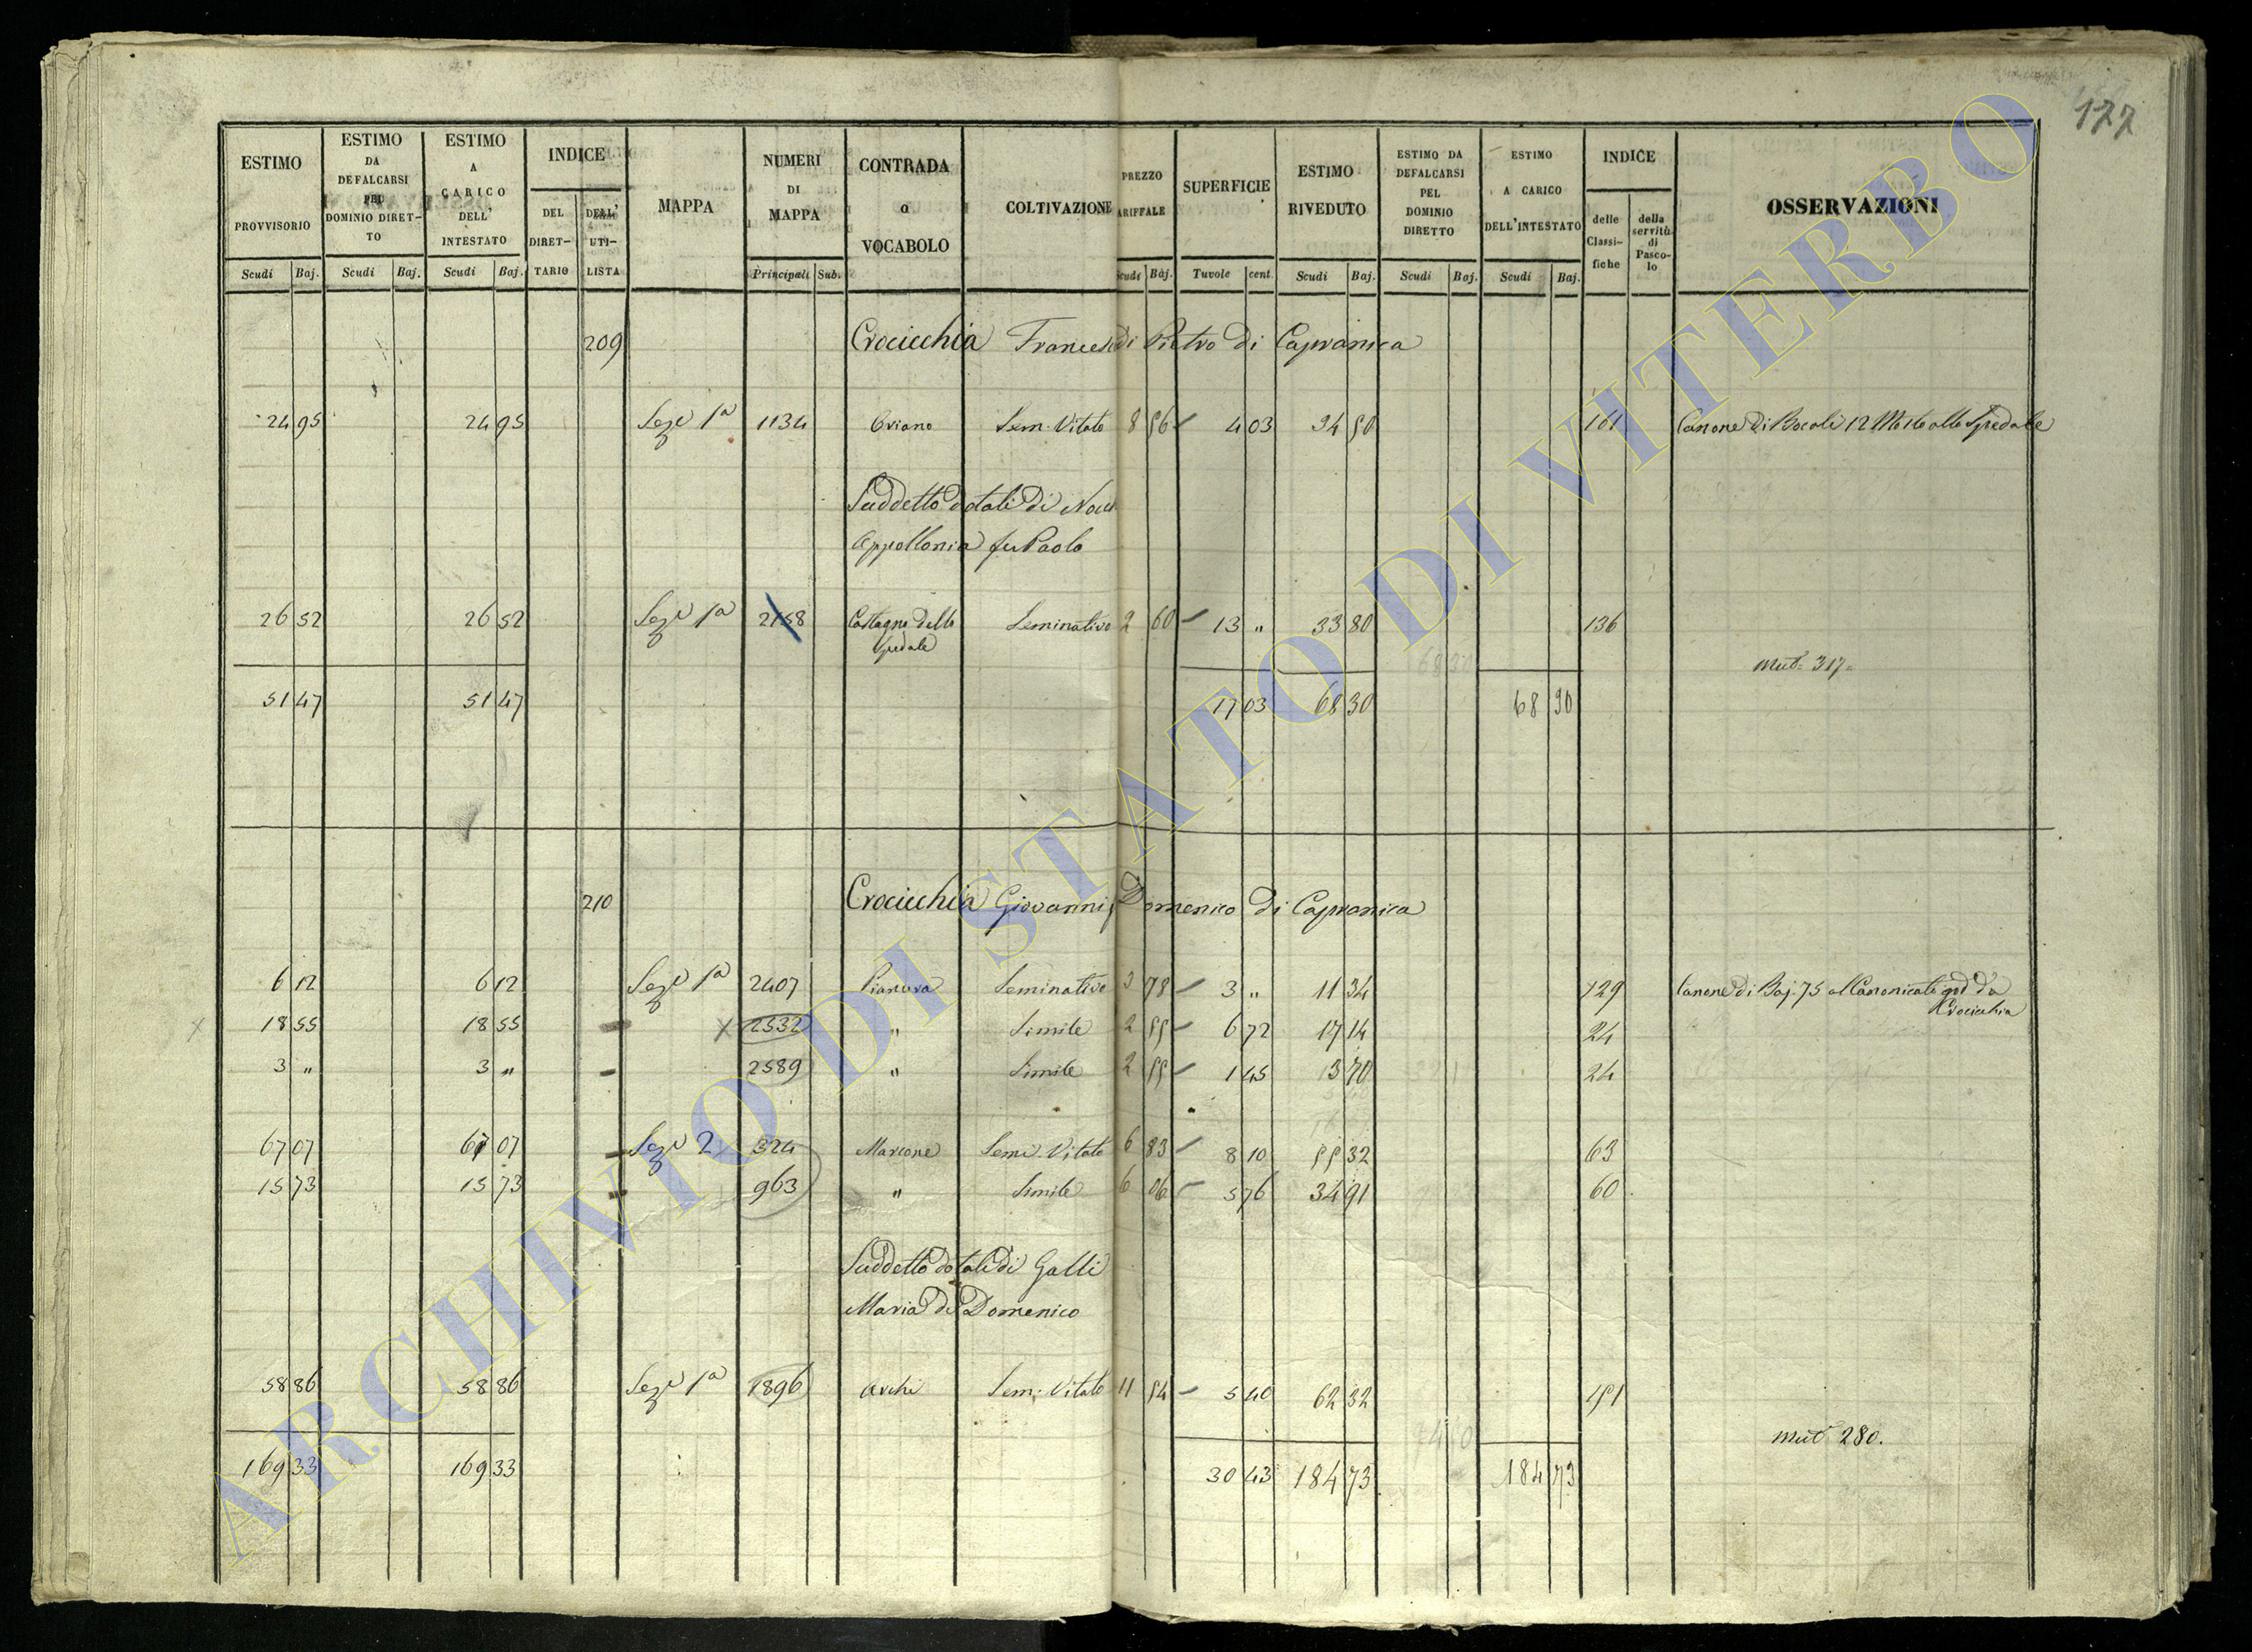 177
ESTIMO PROVVISORIO Scudi Baj.
ESTIMO DA DEFALCARSI PEL DOMINIO DIRET- TO Scudi Baj.
ESTIMO A CARICO DELL' INTESTATO Scudi Baj.
INDICE DEL DIRET- TARIO DELL' UTI- LISTA
MAPPA
NUMERI DI MAPPA Principali Sub.
CONTRADA O VOCABOLO
COLTIVAZIONE
PREZZO TARIFFALE Scudi Baj.
SUPERFICIE Tavole cent.
ESTIMO RIVEDUTO Scudi Baj.
ESTIMO DA DEFALCARSI PEL DOMINIO DIRETTO Scudi Baj.
ESTIMO A CARICO DELL'INTESTATO Scudi Baj.
INDICE delle Classi- fiche della servitù di Pasco- lo
OSSERVAZIONI
209 Crocicchia Francesco di Pietro di Capranica
24 95 24 95 Seze 1a 1134 Oriano Sem. Vitato 8 56 4 03 34 50 161 Canone di Bocali 12 Mosto allo Spedale
Suddetto dotali di
Appollonia fu Paolo
26 52 26 52 Seze 1a 2158 Castagno dello Spedale Seminativo 2 60 13 " 33 80 136
mut= 317=
51 47 51 47 17 03 68 30 68 30
210 Crocicchia Giovanni q Domenico di Capranica
6 12 6 12 Seze 1a 2407 Pianura Seminativo 3 78 3 " 11 34 129 Canone di Baj. 75 al Canonicato god da Crocicchia
18 55 18 55 X 2532 " Simile 2 55 6 72 17 14 24
3 " 3 " 2589 " Simile 2 55 1 45 3 70 24
67 07 67 07 Seze 2 324 Marcone Sem. Vitato 6 83 8 10 55 32 63
15 73 15 73 963 " Simile 6 06 5 76 34 91 60
Suddetto dotali di Galli
Maria di Domenico
58 86 58 86 Seze 1a 1896 Archi Sem. Vitato 11 54 5 40 62 32 151
mut 280.
169 33 169 33 30 43 184 73 184 73
ARCHIVIO DI STATO DI VITERBO